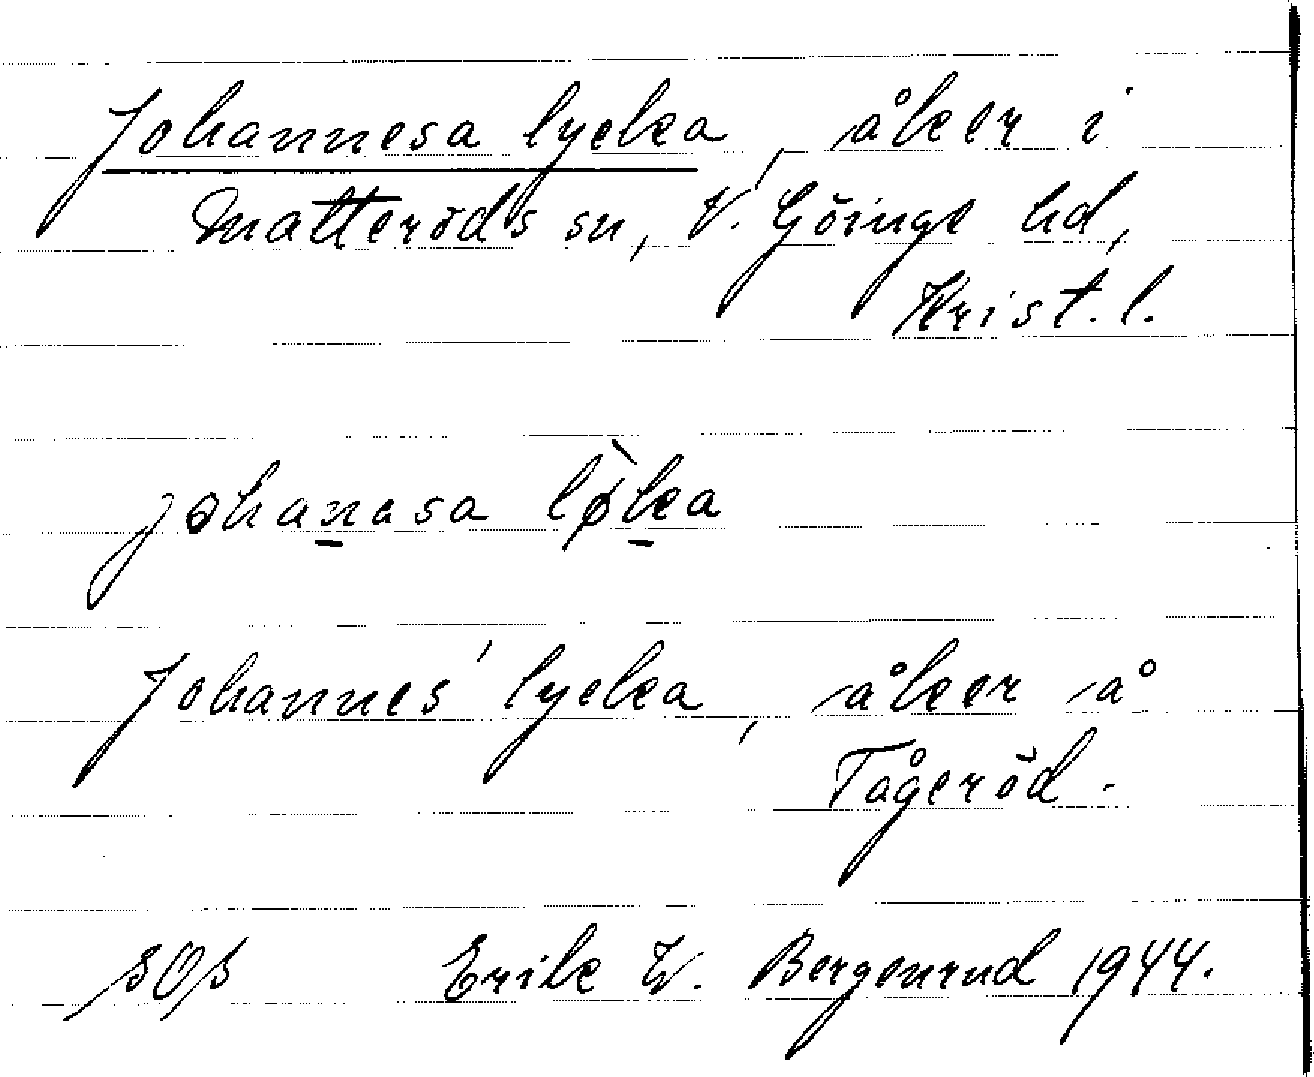 Johannesa lycka, åker i
Matteröds sn, V. Göinge hd,
Krist. l.
johanasa lø̀ka
Johannes' lycka, åker å
Tågeröd.
sOs Erik W. Bergenrud 1944.